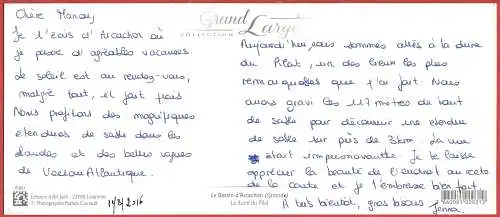 Chère Manou,
Je t'écris d'Arcachon où
je passe d'agréables vacances.
Le soleil est au rendez-vous,
malgré tout, il fait frais
Nous profitons des magnifiques
étendues de sable dans les
Landes et des belles vagues
de l'océan Atlantique.
14/8/2016
Grand Large
COLLECTION
Aujourd'hui, nous sommes allés à la dune
du Pilat, un des lieux les plus
remarquables que j'ai fait. Nous
avons gravi les 117 mètres de haut
de sable pour découvrir une étendue
de sable sur près de 3km. La vue
était impressionnante. Je te laisse
apprécier la beauté de l'endroit au recto
de la carte et je t'embrasse bien fort.
A très bientôt, gros bisous
Le Bassin d'Arcachon (Gironde)
La dune du Pilat